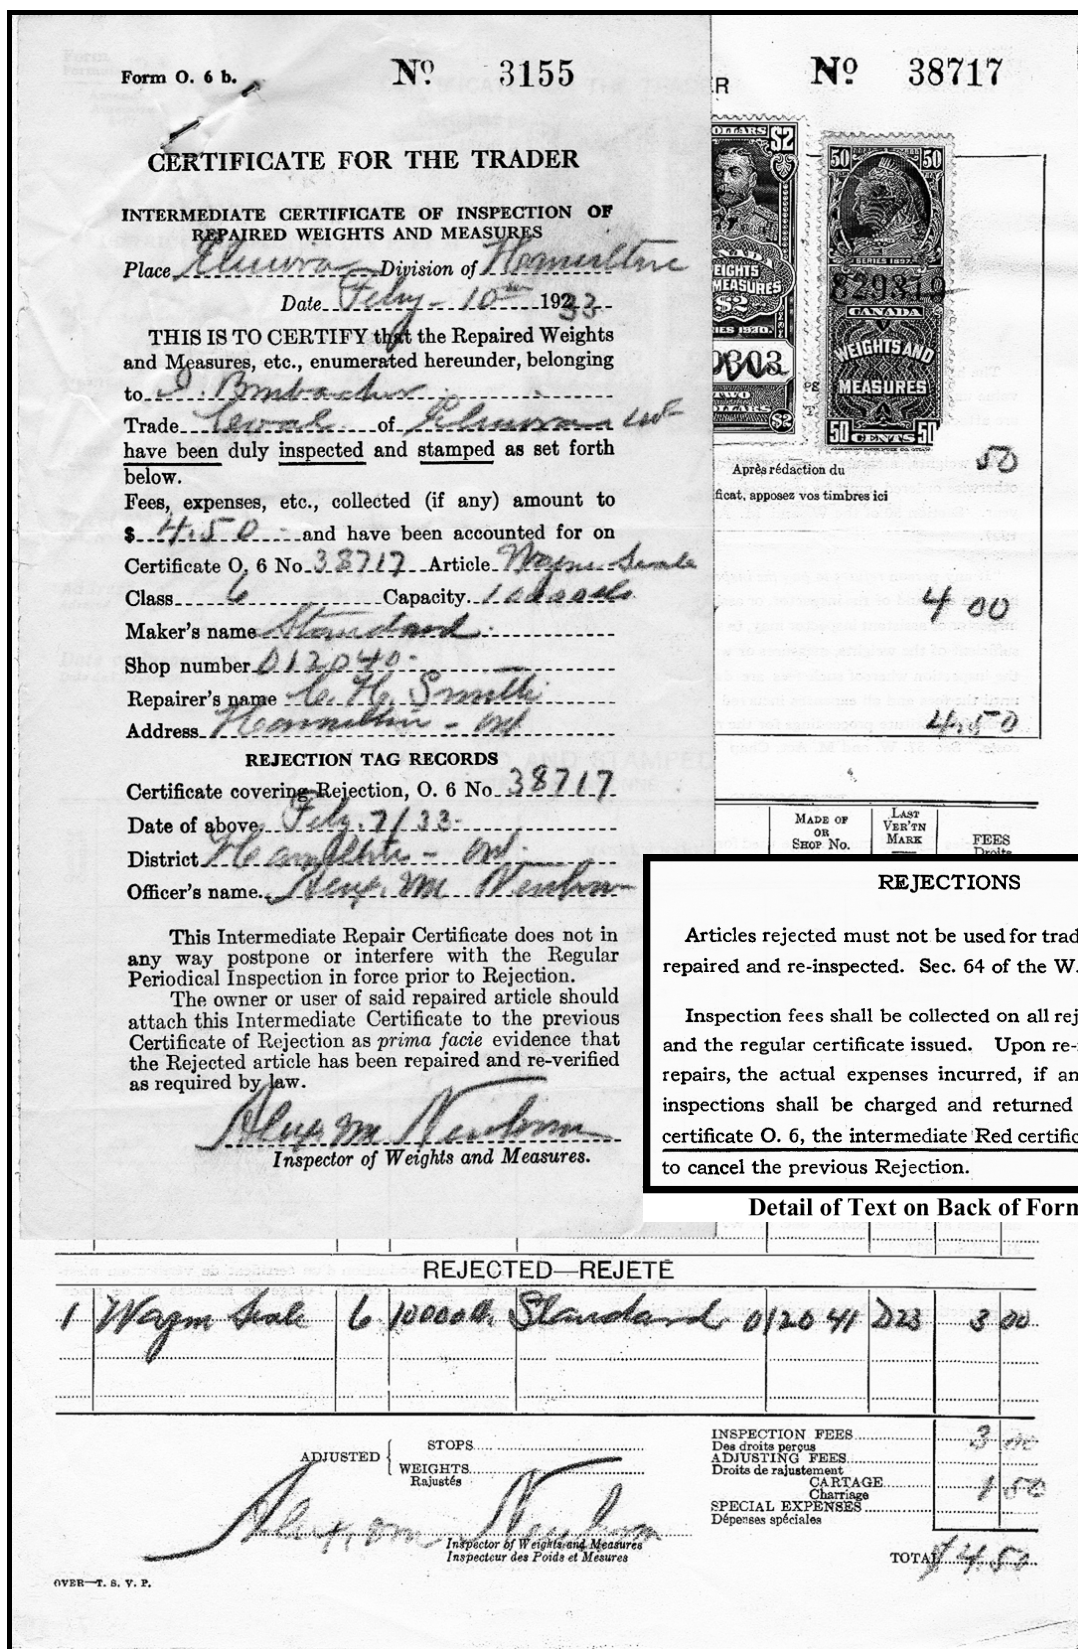 Form O. 6 b.
Nº 3155
CERTIFICATE FOR THE TRADER
INTERMEDIATE CERTIFICATE OF INSPECTION OF
REPAIRED WEIGHTS AND MEASURES
Place Elmira Division of Hamilton
Date Feby - 10th 1933
THIS IS TO CERTIFY that the Repaired Weights
and Measures, etc., enumerated hereunder, belonging
to
Trade of Elmira Ont
have been duly inspected and stamped as set forth
below.
Fees, expenses, etc., collected (if any) amount to
$ 4.50 and have been accounted for on
Certificate O. 6 No. 38717 Article Wagon Scale
Class 6 Capacity
Maker's name Standard
Shop number 012040
Repairer's name C. H. Smith
Address Hamilton - Ont
REJECTION TAG RECORDS
Certificate covering Rejection, O. 6 No 38717
Date of above Feby. 7/33
District Hamilton - Ont.
Officer's name
This Intermediate Repair Certificate does not in
any way postpone or interfere with the Regular
Periodical Inspection in force prior to Rejection.
The owner or user of said repaired article should
attach this Intermediate Certificate to the previous
Certificate of Rejection as prima facie evidence that
the Rejected article has been repaired and re-verified
as required by law.
Inspector of Weights and Measures.
Nº 38717
R
DOLLARS $2
WEIGHTS
MEASURES
$2
TWO
DOLLARS $2
50 50
SERIES 1897
829819
CANADA
WEIGHTS AND
MEASURES
50 CENTS 50
Après rédaction du
ficat, apposez vos timbres ici
50
4 00
4.50
MADE OF
OR
SHOP No.
LAST
VER'TN
MARK
FEES
Droits
REJECTIONS
Articles rejected must not be used for trad
repaired and re-inspected. Sec. 64 of the W.
Inspection fees shall be collected on all rej
and the regular certificate issued. Upon re-
repairs, the actual expenses incurred, if an
inspections shall be charged and returned
certificate O. 6, the intermediate Red certific
to cancel the previous Rejection.
Detail of Text on Back of Form
REJECTED—REJETÉ
1 Wagon Scale 6 10000 lb Standard 012041 D23 3 00
ADJUSTED { STOPS
WEIGHTS
Rajustés
Inspector of Weights and Measures
Inspecteur des Poids et Mesures
INSPECTION FEES 3 00
Des droits perçus
ADJUSTING FEES
Droits de rajustement
CARTAGE 1 50
Charriage
SPECIAL EXPENSES
Dépenses spéciales
TOTAL $4.50
OVER—T. S. V. P.